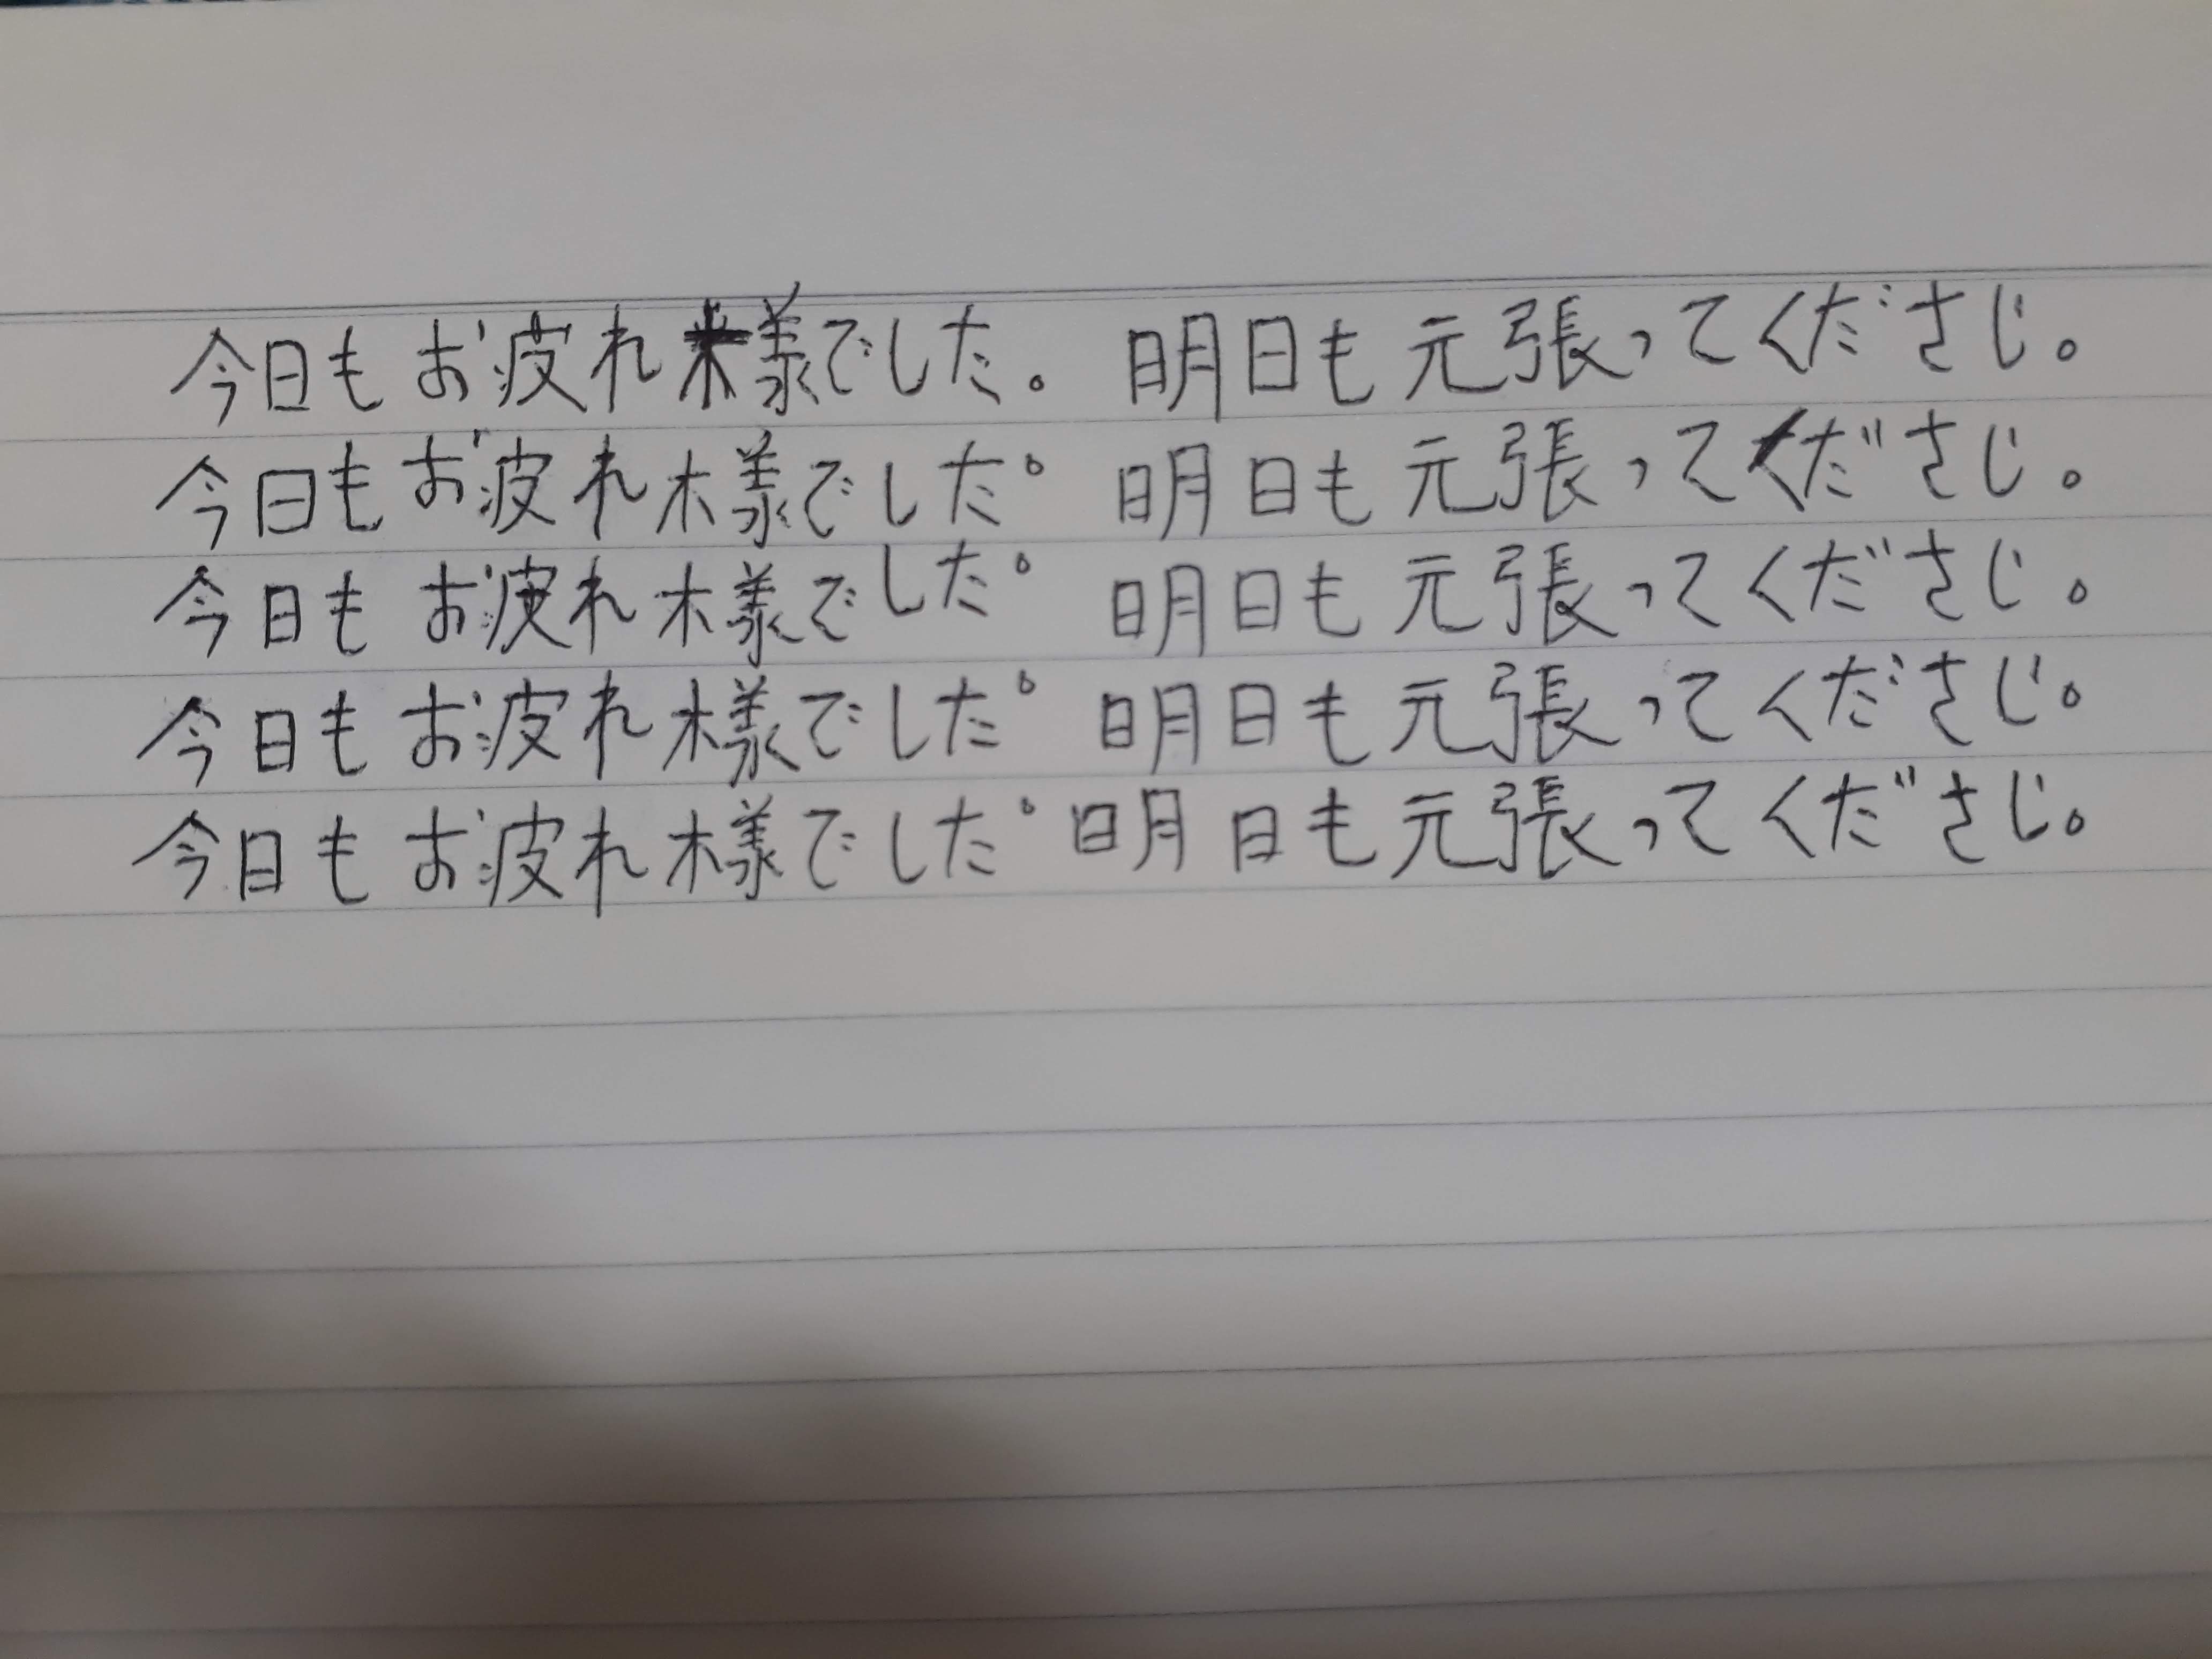 今日もお疲れ様でした。明日も元張ってくださじ。
今日もお疲れ様でした。明日も元張ってくださじ。
今日もお疲れ様でした。明日も元張ってくださじ。
今日もお疲れ様でした。明日も元張ってくださじ。
今日もお疲れ様でした。明日も元張ってくださじ。